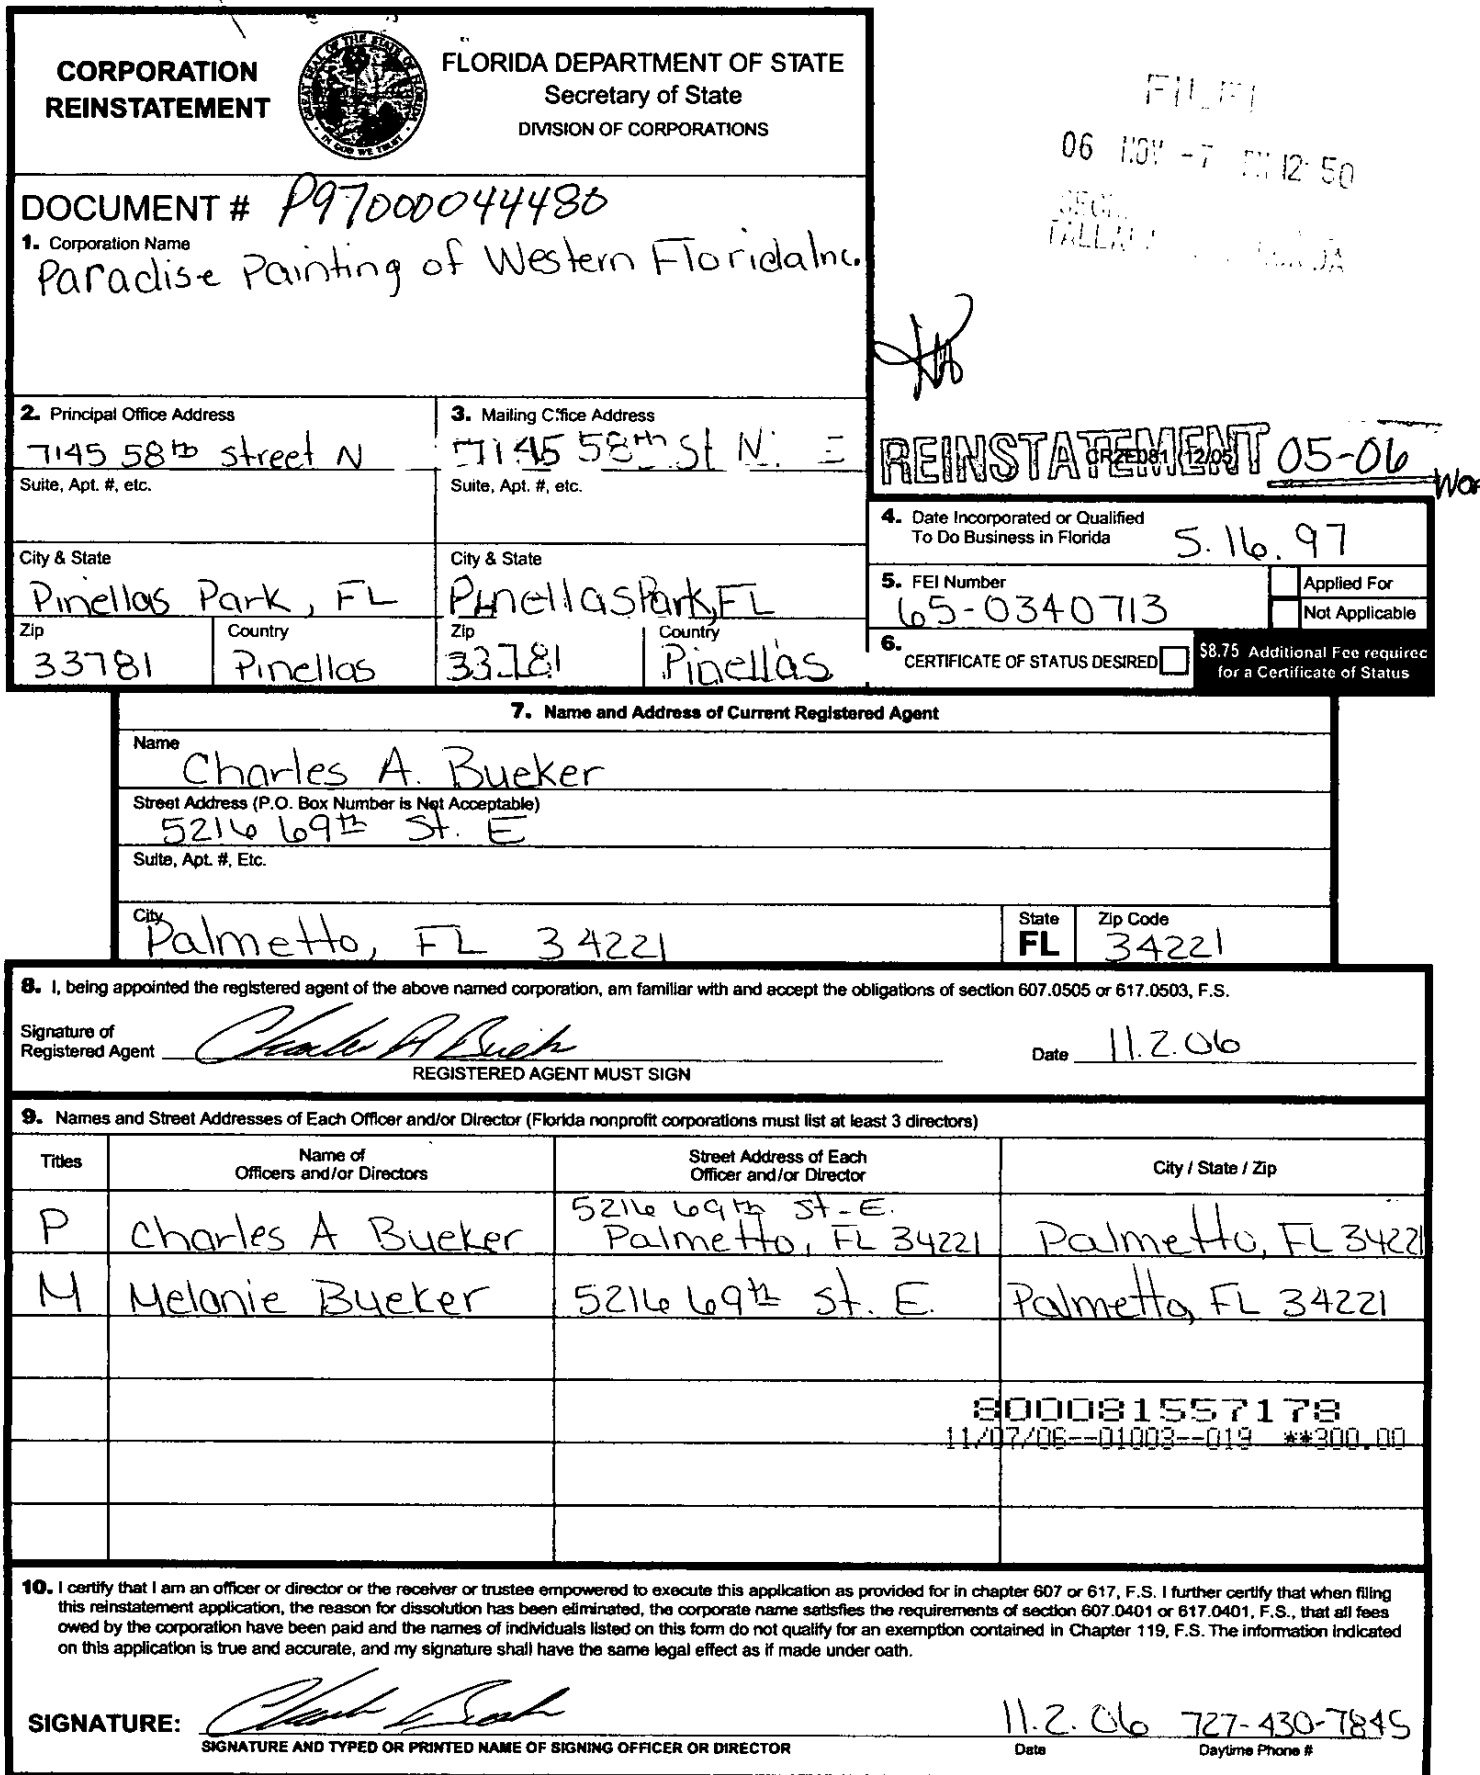 CORPORATION
REINSTATEMENT
GREAT SEAL OF THE STATE OF FLORIDA
IN GOD WE TRUST
FLORIDA DEPARTMENT OF STATE
Secretary of State
DIVISION OF CORPORATIONS
06 NOV -7 12:50
DOCUMENT # P97000044480
1. Corporation Name
Paradise Painting of Western Florida Inc.
2. Principal Office Address
7145 58th street N
Suite, Apt. #, etc.
City & State
Pinellas Park, FL
Zip
33781
Country
Pinellas
3. Mailing Office Address
7145 58th St N.
Suite, Apt. #, etc.
City & State
Pinellas Park, FL
Zip
33781
Country
Pinellas
REINSTATEMENT 05-06
CR2E081 (12/05)
4. Date Incorporated or Qualified
To Do Business in Florida
5.16.97
5. FEI Number
65-0340713
Applied For
Not Applicable
6.
CERTIFICATE OF STATUS DESIRED
$8.75 Additional Fee required
for a Certificate of Status
7. Name and Address of Current Registered Agent
Name
Charles A. Bueker
Street Address (P.O. Box Number is Not Acceptable)
5216 69th St. E
Suite, Apt. #, Etc.
City
Palmetto, FL 34221
State
FL
Zip Code
34221
8. I, being appointed the registered agent of the above named corporation, am familiar with and accept the obligations of section 607.0505 or 617.0503, F.S.
Signature of
Registered Agent
REGISTERED AGENT MUST SIGN
Date 11.2.06
9. Names and Street Addresses of Each Officer and/or Director (Florida nonprofit corporations must list at least 3 directors)
Titles
Name of
Officers and/or Directors
Street Address of Each
Officer and/or Director
City / State / Zip
P
Charles A Bueker
5216 69th St. E.
Palmetto, FL 34221
Palmetto, FL 34221
M
Melanie Bueker
5216 69th St. E.
Palmetto, FL 34221
800081557178
11/07/06--01003--019 **300.00
10. I certify that I am an officer or director or the receiver or trustee empowered to execute this application as provided for in chapter 607 or 617, F.S. I further certify that when filing
this reinstatement application, the reason for dissolution has been eliminated, the corporate name satisfies the requirements of section 607.0401 or 617.0401, F.S., that all fees
owed by the corporation have been paid and the names of individuals listed on this form do not qualify for an exemption contained in Chapter 119, F.S. The information indicated
on this application is true and accurate, and my signature shall have the same legal effect as if made under oath.
SIGNATURE:
SIGNATURE AND TYPED OR PRINTED NAME OF SIGNING OFFICER OR DIRECTOR
11.2.06
Date
727-430-7845
Daytime Phone #